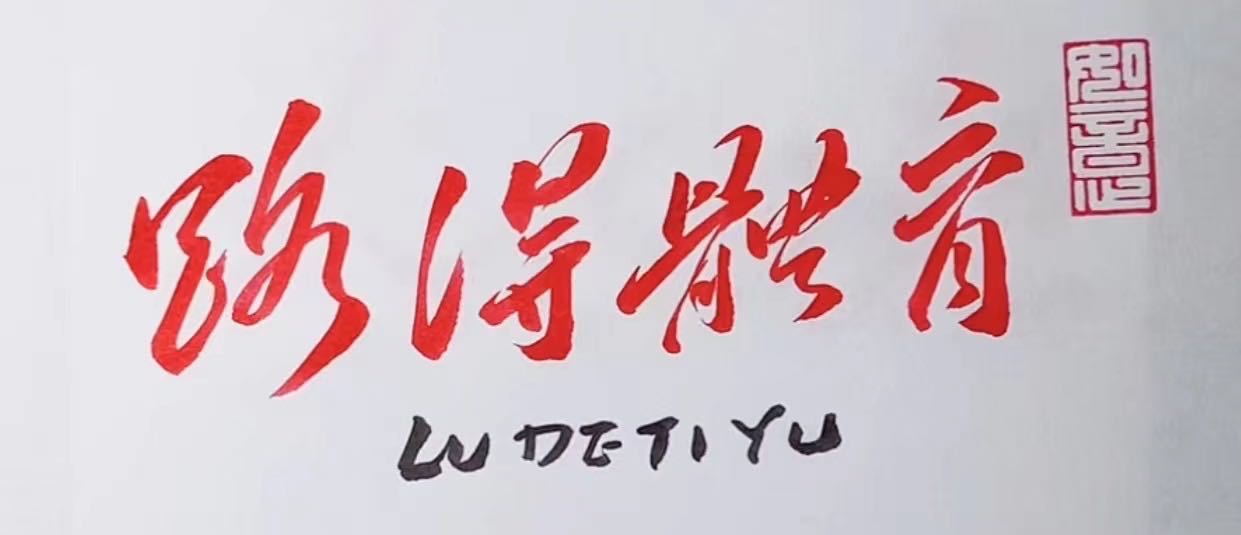 路得體育
LU DE TI YU